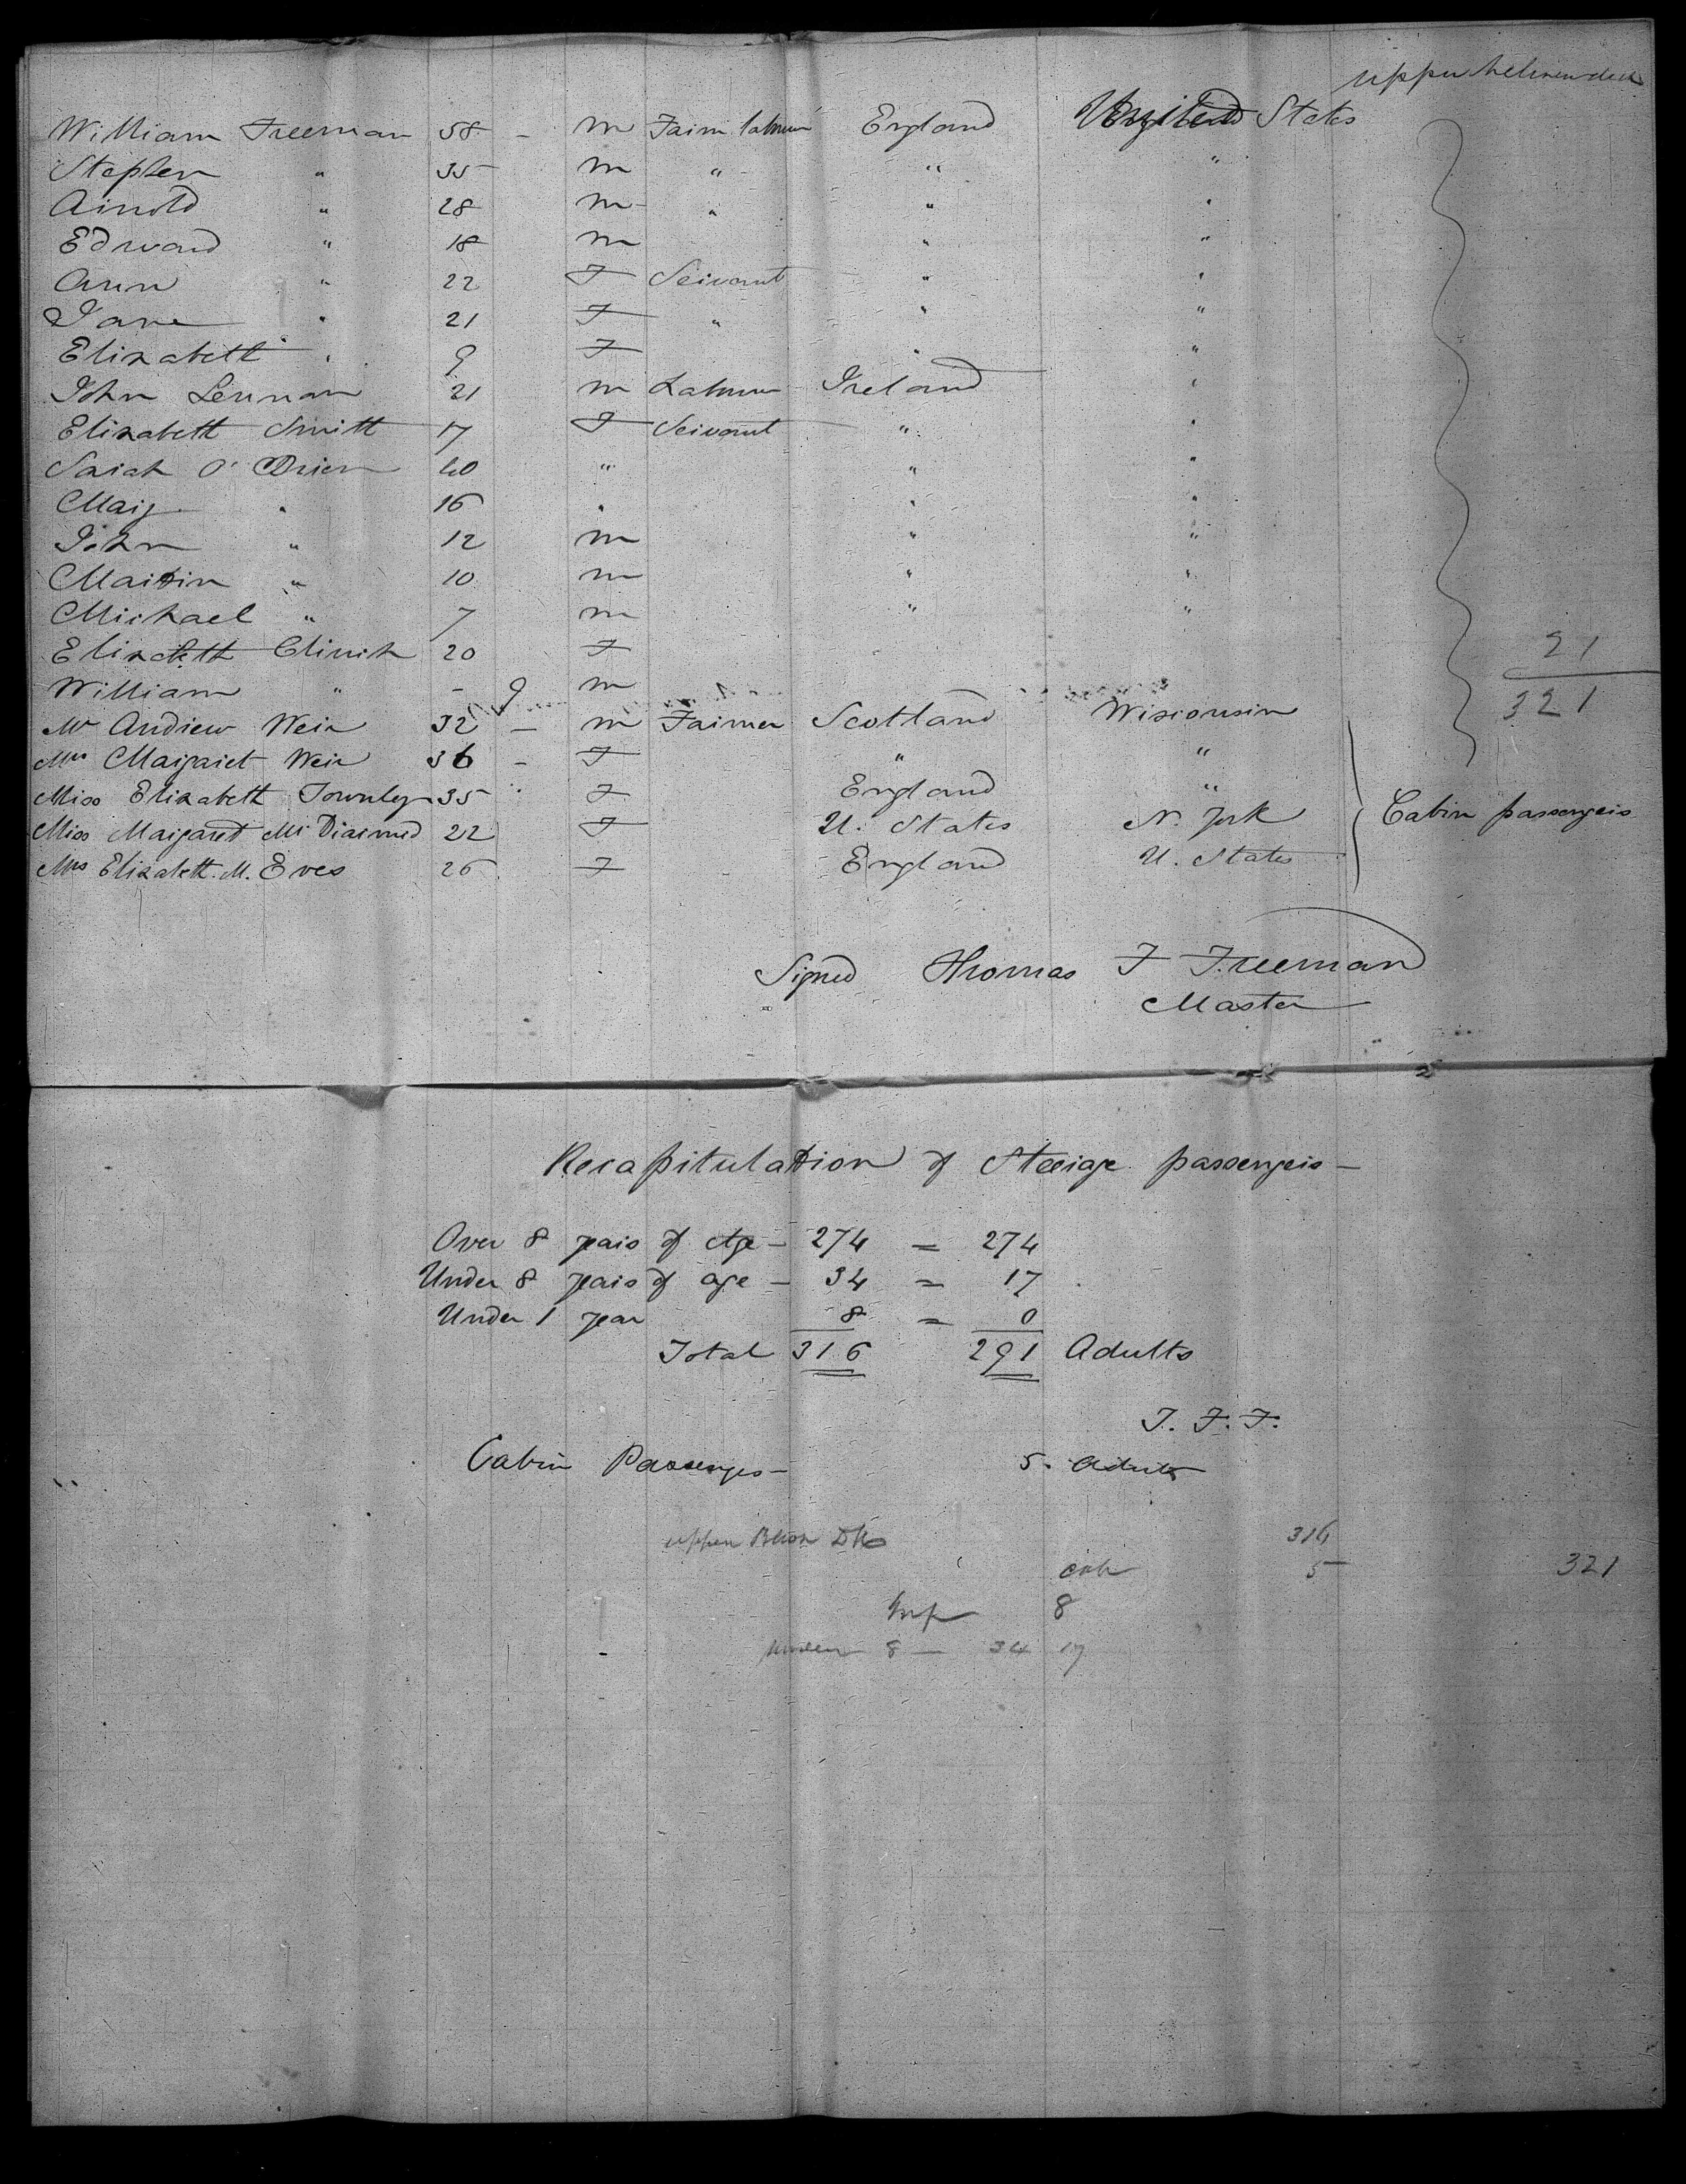 upper between deck
William Freeman 58 - m Farm labourer England United States
Stephen " 35 m " " "
Arnold " 28 m " " "
Edward " 18 m " "
Ann " 22 F Servant " "
Jane " 21 F " " "
Elizabeth " 9 F " "
John Lennan 21 m Labourer Ireland "
Elizabeth Smith 17 F Servant " "
Sarah O'Brien 40 " " "
Mary " 16 " " "
John " 12 m " "
Martin " 10 m " "
Michael " 7 m " "
Elizabeth 20 F
21
William " - 9 m
321
Mr Andrew Weir 32 - m Farmer Scotland Wisconsin
Mrs Margaret Weir 36 - F " "
Miss Elizabeth Townley 35 " F England "
Cabin passengers
Miss Margaret McDiarmid 22 F U. States N. York
Mrs Elizabeth. M. Eves 26 F England U. States
Signed Thomas F Freeman
Master
Recapitulation of Steerage passengers -
Over 8 years of Age - 274 = 274
Under 8 years of age - 34 = 17
Under 1 year 8 = 0
Total 316 291 Adults
T. F. F.
Cabin Passengers - 5. Adults
upper Dks 316
cab 5 321
Inf 8
under 8 - 34 17